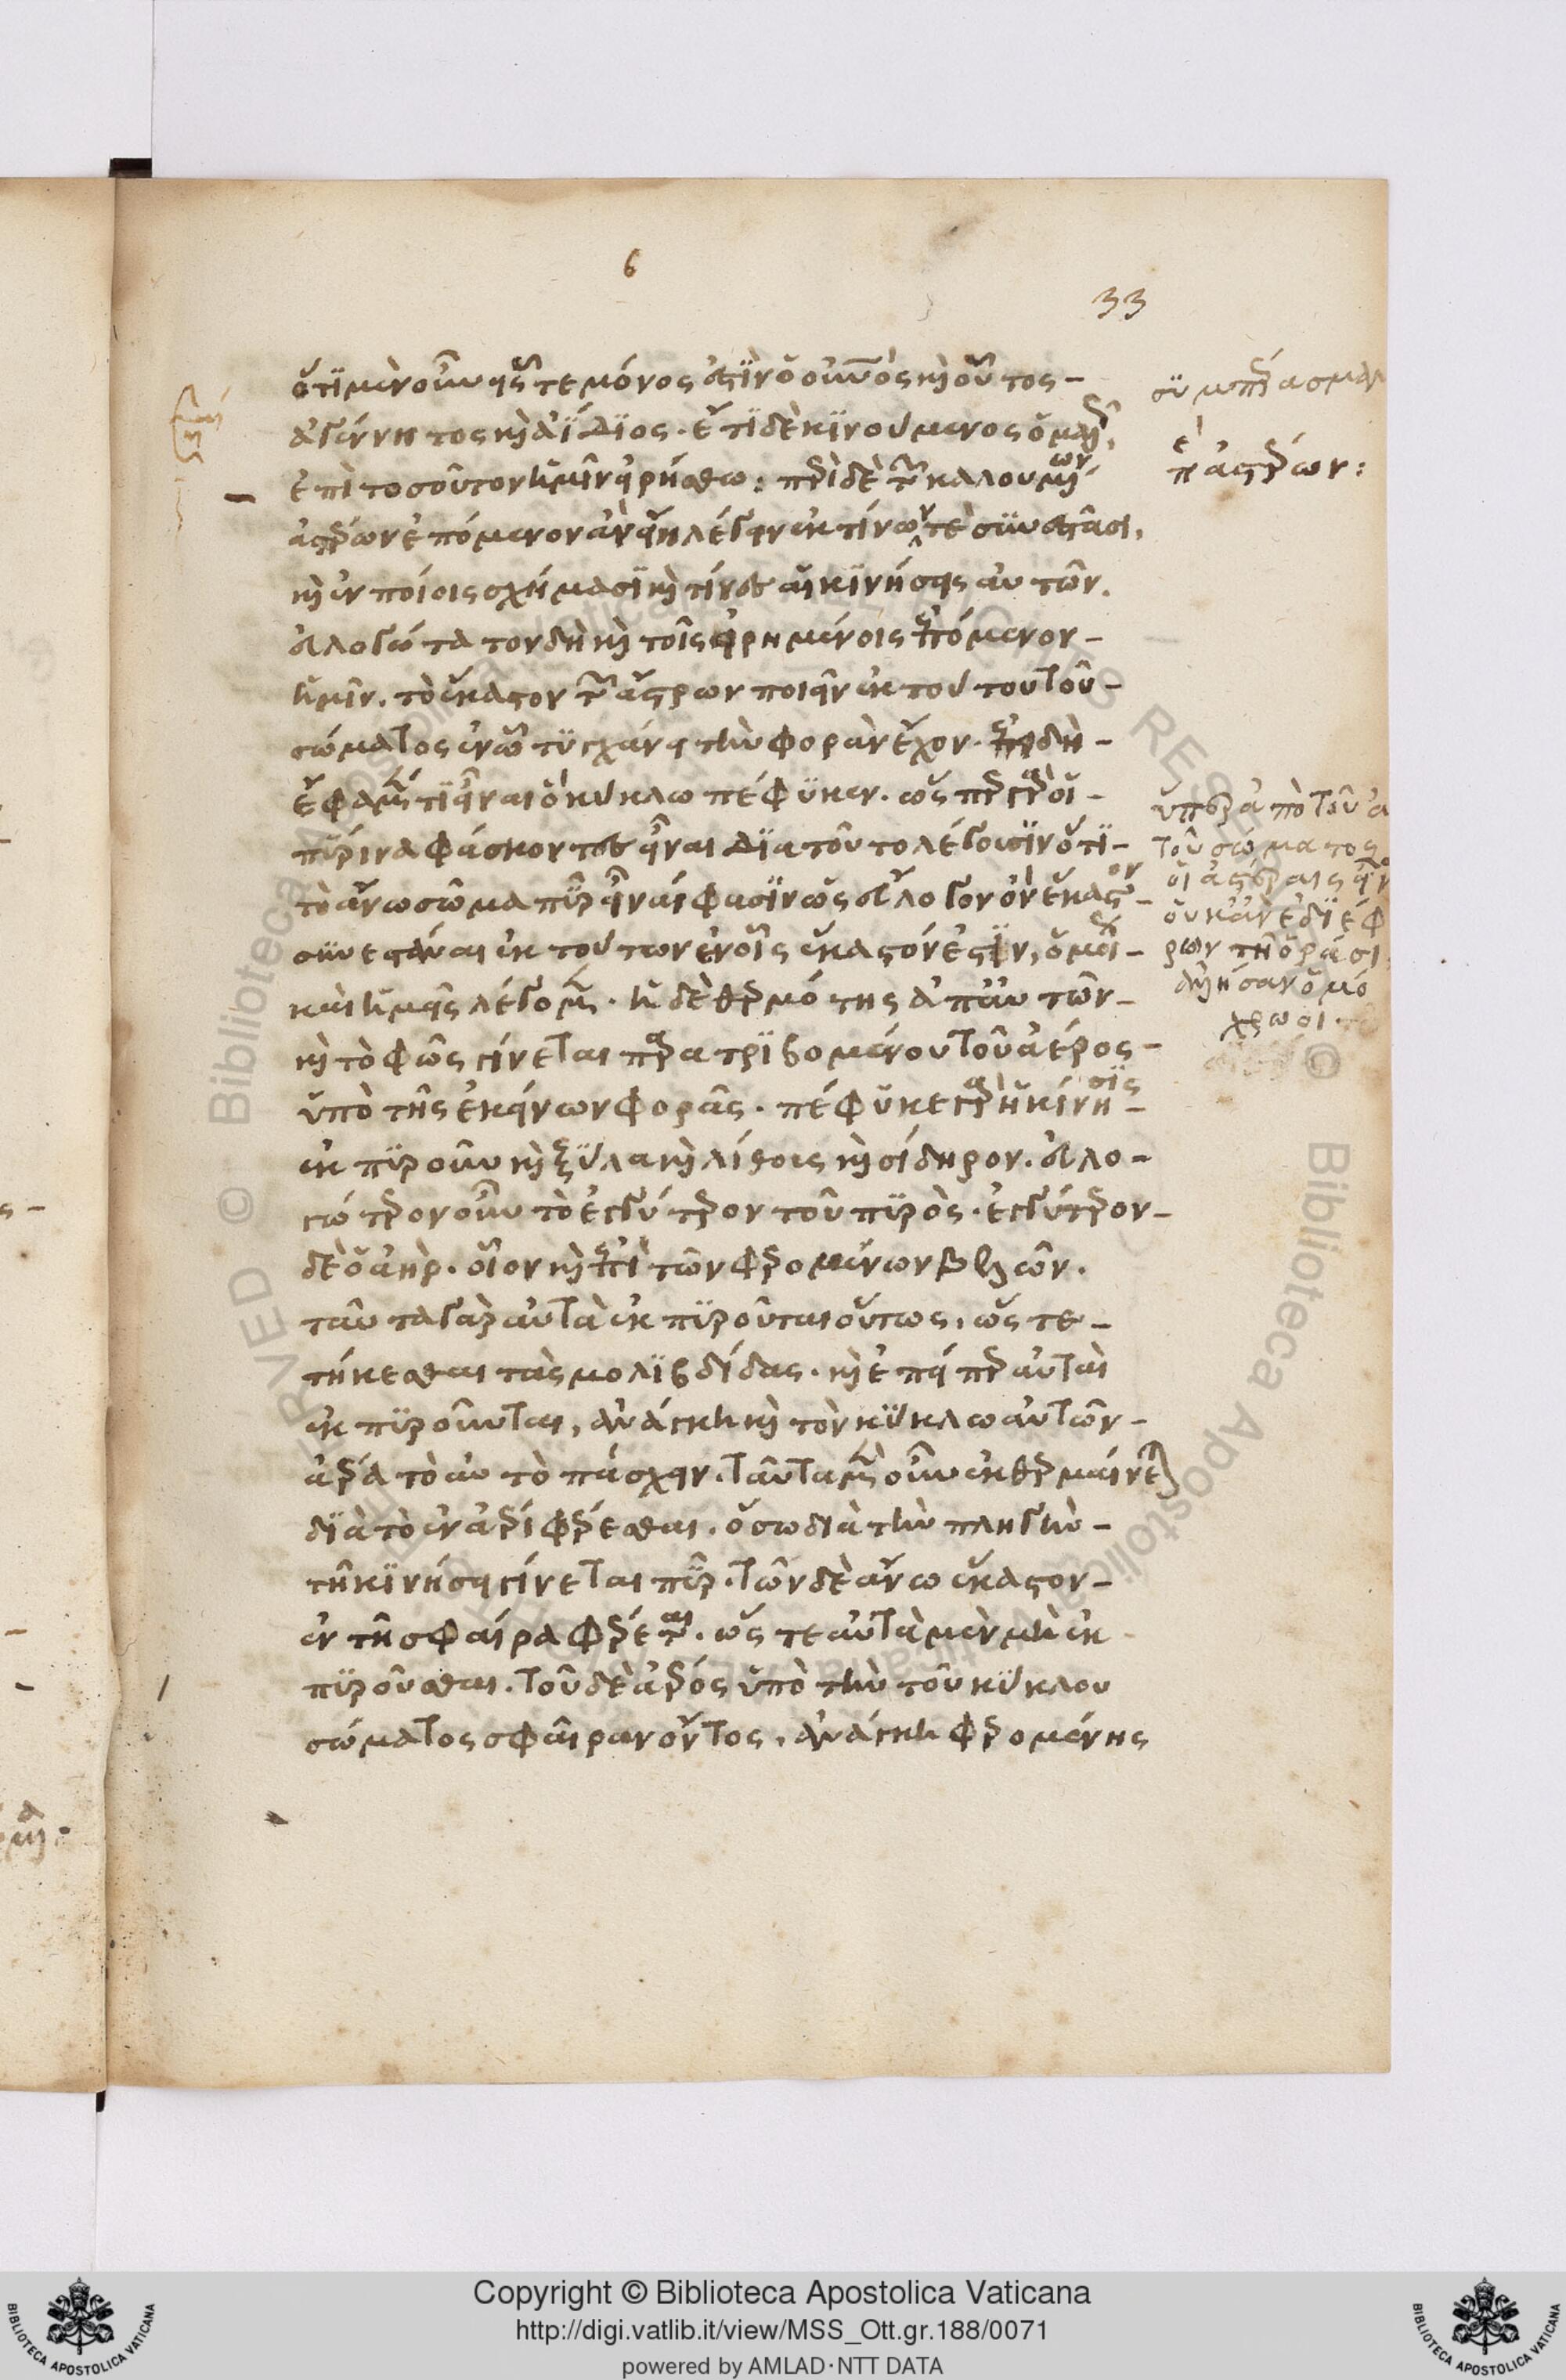 6
33
ὅτι μὲν οὖν εἷς τε μόνος ἐστὶν ὁ οὐρανὸς καὶ οὗτος
ἀγέννητος καὶ ἀΐδιος. ἔτι δὲ κινούμενος ὁμαλῶς,
ἐπὶ τοσοῦτον ἡμῖν εἰρήσθω: περὶ δὲ τῶν καλουμένων
ἄστρων ἑπόμενον ἂν εἴη λέγειν ἐκ τίνων τε συνεστᾶσι,
καὶ ἐν ποίοις σχήμασι καὶ τίνες αἱ κινήσεις αὐτῶν.
εὐλογώτατον δὴ καὶ τοῖς εἰρημένοις ἑπόμενον
ἡμῖν. τὸ ἕκαστον τῶν ἄστρων ποιεῖν ἐκ τούτου τοῦ
σώματος ἐν ᾧ τυγχάνει τὴν φορὰν ἔχον. ἐπειδὴ
ἔφαμέν τι εἶναι ὃ κύκλω πέφυκεν. ὥσπερ γὰρ οἱ
πύρινα φάσκοντες εἶναι διὰ τοῦτο λέγουσιν ὅτι
τὸ ἄνω σῶμα πῦρ εἶναί φασιν ὡς εὔλογον ὂν ἕκαστον
συνεστάναι ἐκ τούτων ἐν οἷς ἕκαστόν ἐστιν, ὁμοίως
καὶ ἡμεῖς λέγομεν. ἡ δὲ θερμότης ἀπ' αὐτῶν
καὶ τὸ φῶς γίνεται παρατριβομένου τοῦ ἀέρος
ὑπὸ τῆς ἐκείνων φορᾶς. πέφυκε γὰρ ἡ κίνησις
ἐκπυροῦν καὶ ξύλα καὶ λίθους καὶ σίδηρον. εὐλο
γώτερον οὖν τὸ ἐγγύτερον τοῦ πυρὸς. ἐγγύτερον
δὲ ὁ ἀὴρ. οἷον καὶ ἐπὶ τῶν φερομένων βελῶν.
ταῦτα γὰρ αὐτὰ ἐκπυροῦται οὕτως, ὥστε
τήκεσθαι τὰς μολιβδίδας. καὶ ἐπείπερ αὐταὶ
ἐκπυροῦνται, ἀνάγκη καὶ τὸν κύκλω αὐτῶν
ἀέρα τὸ αὐτὸ πάσχειν. ταῦτα μὲν οὖν ἐκθερμαίνεται
διὰ τὸ ἐν ἀέρι φέρεσθαι. ὃς διὰ τὴν πληγὴν
τῆ κινήσει γίνεται πῦρ. τῶν δὲ ἄνω ἕκαστον
ἐν τῆ σφαίρα φέρεται. ὥστε αὐτὰ μὲν μὴ ἐκ
πυροῦσθαι. τοῦ δὲ ἀέρος ὑπὸ τὴν τοῦ κύκλου
σώματος σφαῖραν ὄντος, ἀνάγκη φερομένης
περὶ ἄστρων:
ὕπερ ἀπὸ τοῦ
τοῦ σώματος
Copyright © Biblioteca Apostolica Vaticana
http://digi.vatlib.it/view/MSS_Ott.gr.188/0071
powered by AMLAD·NTT DATA
BIBLIOTECA APOSTOLICA VATICANA
BIBLIOTECA APOSTOLICA VATICANA